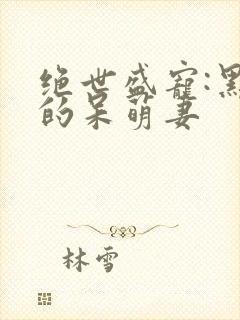 绝世盛宠:黑
的呆萌妻
林雪